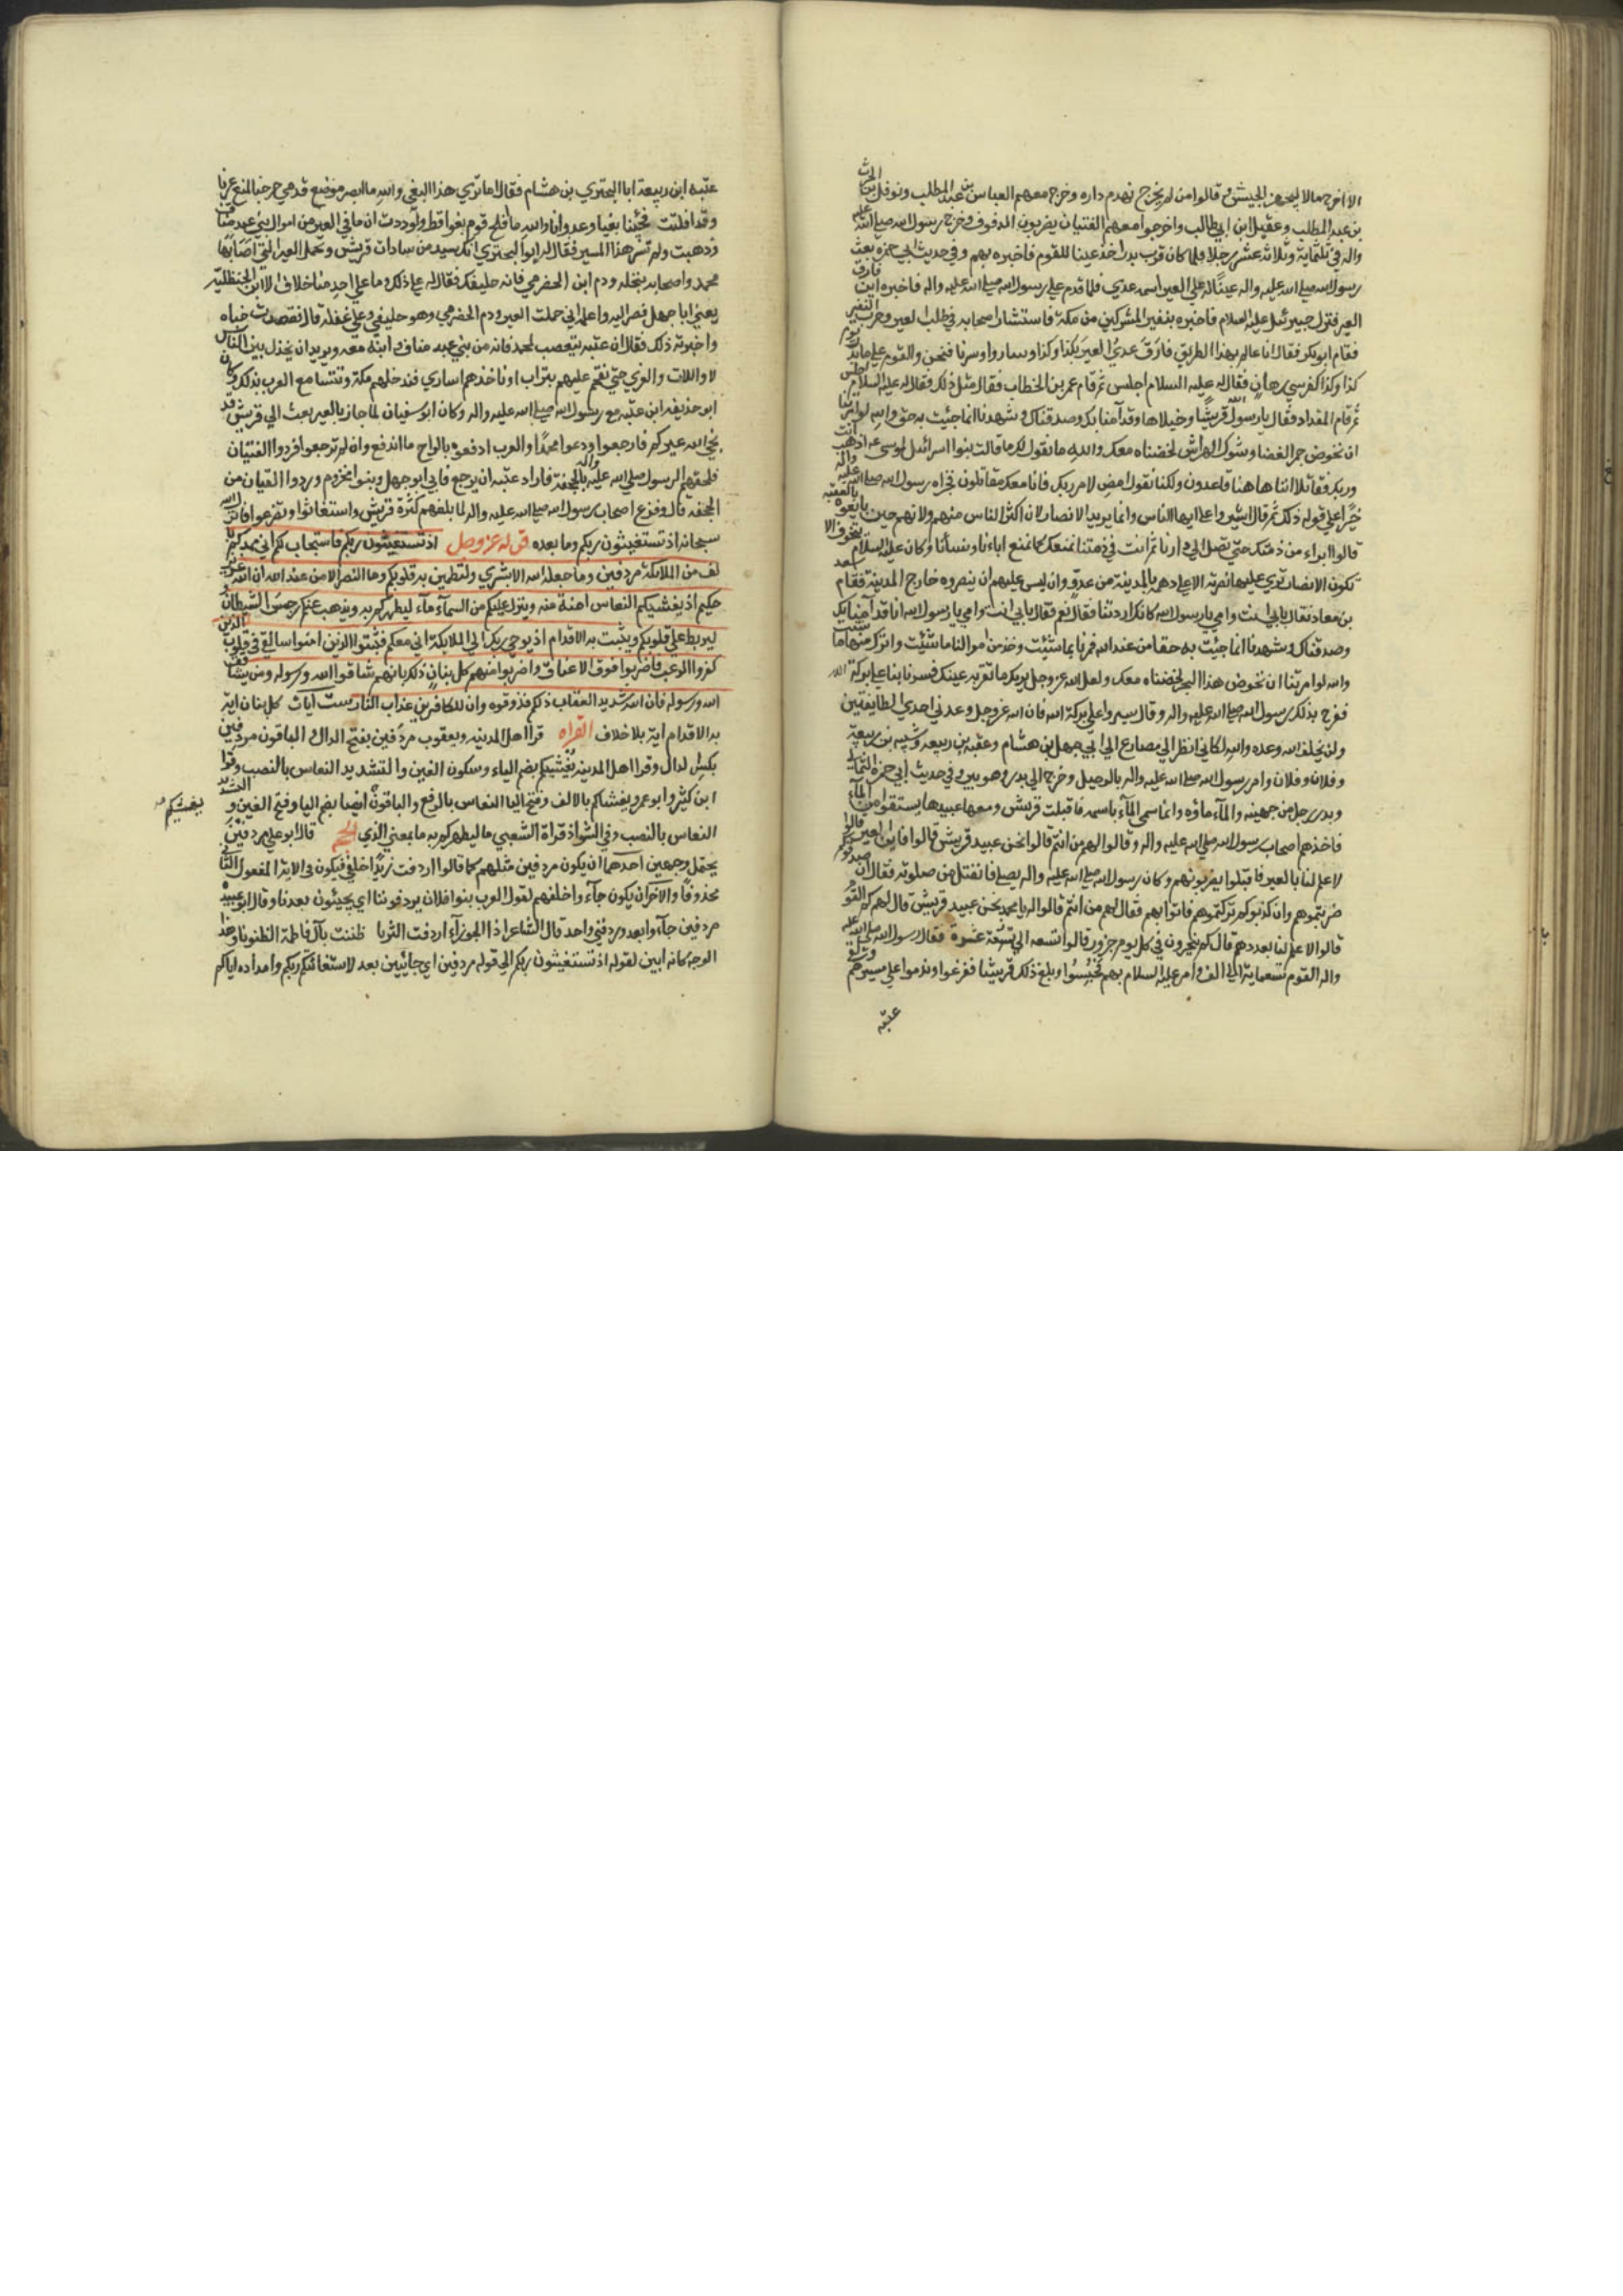 الا اخرج مالا ليجهز الجيش و قالوا من لم يخرج نهدم داره وخرج معهم العباس بن عبد المطلب ونوفل بن الحرث
بن عبد المطلب وعقيل ابن ابي طالب واخرجوا معهم القتيان يضربون الدفوف وخرج رسول الله صلي الله عليه
واله في ثلثماية وثلاثه عشر رجلا فلما كان قرب بدر اخذ عينا للقوم فاخبره بهم وفي حديث ابي حمزه بعث
رسول الله صلي الله عليه واله عينا له علي العير اسمه عدي فلما قدم علي رسول الله صلي الله عليه واله فاخبره اين فارق
العير فنزل جبرئيل عليه السلام فاخبره بنفير المشركين من مكة فاستشار اصحابه في طلب العير وحرب النفير
فقام ابوبكر فقال انا عالم بهذا الطريق فارق عدي العير بكذا وكذا وساروا وسرنا فنحن والقوم علي ماء بدر يوم
كذا وكذا كفرسي رهان فقال له عليه السلام اجلس ثم قام عمر بن الخطاب فقال مثل ذلك فقال له عليه السلام اجلس
ثم قام المقداد فقال يا رسول الله قريشا وخيلاها وقد آمنا بك وصدقناك وشهدنا انما جئيت به حق والله لو امرتنا
ان نخوض جمر الغضا وشوك الهراش لخضناه معك والله ما نقول لك ما قالت بنوا اسرائيل لموسى اذهب انت
وربك فقاتلا انا هاهنا قاعدون ولكنا نقول امض لامر ربك فانا معك مقاتلون فجزاه رسول الله صلي الله عليه واله
خيرا علي قوله ذلك ثم قال اشيروا علي ايها الناس وانما يريد الانصار لان اكثر الناس منهم ولانهم حين بايعوه بالعقبه
قالوا ابراء من ذمتك حتي تصل الي دارنا ثم انت في ذمتنا نمنعك كما نمنع اباءنا ونساءنا وكان عليه السلام يتخوف الا
تكون الانصار تري عليها نصرته الا علي دهمه بالمدينة من عدو وان ليس عليهم ان ينصروه خارج المدينة فقام سعد
بن معاذ فقال بابي انت وامي يا رسول الله كانك اردتنا فقال نعم فقال بابي انت وامي يا رسول الله انا قد آمنا بك
وصدقناك وشهدنا انما جئيت به حقا من عند الله فمرنا بما شئيت وخذ من اموالنا ما شئيت واترك منها ما شئيت
والله لو امرتنا ان نخوض هذا البحر لخضناه معك ولعل الله عز وجل يريك ما تقر به عينك فسر بنا علي بركة الله
ففرح بذلك رسول الله صلي الله عليه واله وقال سيروا علي بركة الله فان الله عز وجل وعدني احدي الطايفتين
ولن يخلف الله وعده والله لكاني انظر الي مصارع ابي جهل بن هشام وعتبه بن ربيعه وشيبه بن ربيعة
وفلان وفلان وامر رسول الله صلي الله عليه واله بالرحيل وخرج الي بدر وهو بير وفي حديث ابي حمزه الثمالي
وبدر رجل من جهينه والمآء ماؤه وانما سمي المآء باسمه فاقبلت قريش ومعها عبيدها يستقوا من المآء
فاخذهم اصحاب رسول الله صلي الله عليه واله وقالوا لهم من انتم قالوا نحن عبيد قريش قالوا فاين العير قالوا
لا علم لنا بالعير فاقبلوا يضربونهم وكان رسول الله صلي الله عليه واله يصلي فانفتل من صلوته فقال ان صدقوكم
ضربتموهم وان كذبوكم تركتموهم فاتوا بهم فقال لهم من انتم قالوا له يا محمد نحن عبيد قريش قال لهم كم القوم
قالوا لا علم لنا بعددهم قال كم ينحرون في كل يوم جزور قالوا تسعه الي عشرة فقال رسول الله صلي الله عليه
واله القوم تسعماية الي الف وامر عليه السلام بهم فحبسوا وبلغ ذلك قريشا ففزعوا وندموا علي مسيرهم
عتبه
عتبه ابن ربيعة ابا البختري بن هشام فقال اما تري هذا البغي والله ما ابصر موضع قدمي خرجنا لنمنع عيرنا
وقد افلتت فجئنا بغيا وعدوانا والله ما افلح قوم بغوا قط ولوددت ان ما في العير من اموال بني عبد مناف
ذهبت ولم نسر هذا المسير فقال له ابو البختري انك سيد من سادات قريش وتحمل العير التي اصابها
محمد واصحابه بنخله ودم ابن الحضرمي فانه حليفك فقال له علي ذلك وما علي احد منا خلاف الا ابن الحنظليه
يعني ابا جهل فصر اليه واعلمه اني حملت العير ودم الحضرمي وهو حليفي وعلي عقله قال فقصدت خباه
واخبرته ذلك فقال ان عتبه يتعصب لمحمد فانه من بني عبد مناف وابنه معه ويريدان يخذل بين الناس
لا واللات والعزي حتي نقحم عليهم بيثرب او ناخذهم اساري فندخلهم مكة وتتسامع العرب بذلك وكان
ابو حذيفه ابن عتبه مع رسول الله صلي الله عليه واله وكان ابو سفيان لما جاز بالعير بعث الي قريش قد
نجي الله عيركم فارجعوا ودعوا محمدا والعرب ادفعوه بالراح ما اندفع وان لم ترجعوا فردوا القتيان
فلحقهم الرسول صلي الله عليه واله بالجحفة فاراد عتبه ان يرجع فابي ابو جهل وبنوا مخزوم وردوا القيان من
الجحفه قال وفزع اصحاب رسول الله صلي الله عليه واله لما بلغهم كثرة قريش واستغاثوا وتضرعوا فانزل الله
سبحانه اذ تستغيثون ربكم وما بعده قوله عز وجل اذ تستغيثون ربكم فاستجاب لكم اني ممدكم بأ
لف من الملائكة مردفين وما جعله الله الا بشري ولتطمين به قلوبكم وما النصر الا من عند الله ان الله عزيز
حكيم اذ يغشيكم النعاس امنة منه وينزل عليكم من السمآء مآء ليطهركم به ويذهب عنكم رجس الشيطان و
ليربط علي قلوبكم ويثبت به الاقدام اذ يوحي ربك الي الملائكة اني معكم فثبتوا الذين امنوا سالقي في قلوب الذين
كفروا الرعب فاضربوا فوق الاعناق واضربوا منهم كل بنان ذلك بانهم شاقوا الله ورسوله ومن يشاقق
الله ورسوله فان الله شديد العقاب ذلكم فذوقوه وان للكافرين عذاب النار ست آيات كل بنان ايه
به الاقدام اية بلا خلاف القراه قرا اهل المدينه ويعقوب مردفين بفتح الدال و الباقون مردفين
بكسر الدال وقرا اهل المدينه يغشيكم بضم الياء وسكون الغين والتشديد النعاس بالنصب وقرا
ابن كثير وابو عمرو يغشاكم بالالف وفتح اليا النعاس بالرفع والباقون ايضا بضم اليا وفتح الغين و التشديد
يغشيكم
النعاس بالنصب وفي الشواذ قراة الشعبي ما ليطهركم به ما بمعني الذي الحجه قال ابو علي مردفين
يحتمل وجهين احدهما ان يكون مردفين مثلهم كما قالوا اردفت زيدا خلفي فيكون في الاية المفعول الثاني
محذوفا والآخر ان يكون جآءوا خلفهم لقول العرب بنوا فلان يردفوننا اي يجيئون بعدنا وقال ابو عبيده
مردفين جآءوا بعد وردفني واحد قال الشاعر اذا الجوزآء اردفت الثريا ظننت بآل فاطمة الظنونا وهذا
الوجه كانه ابين لقوله اذ تستغيثون ربكم الي قوله مردفين اي جائيين بعد لاستغاثتكم ربكم وامداده اياكم